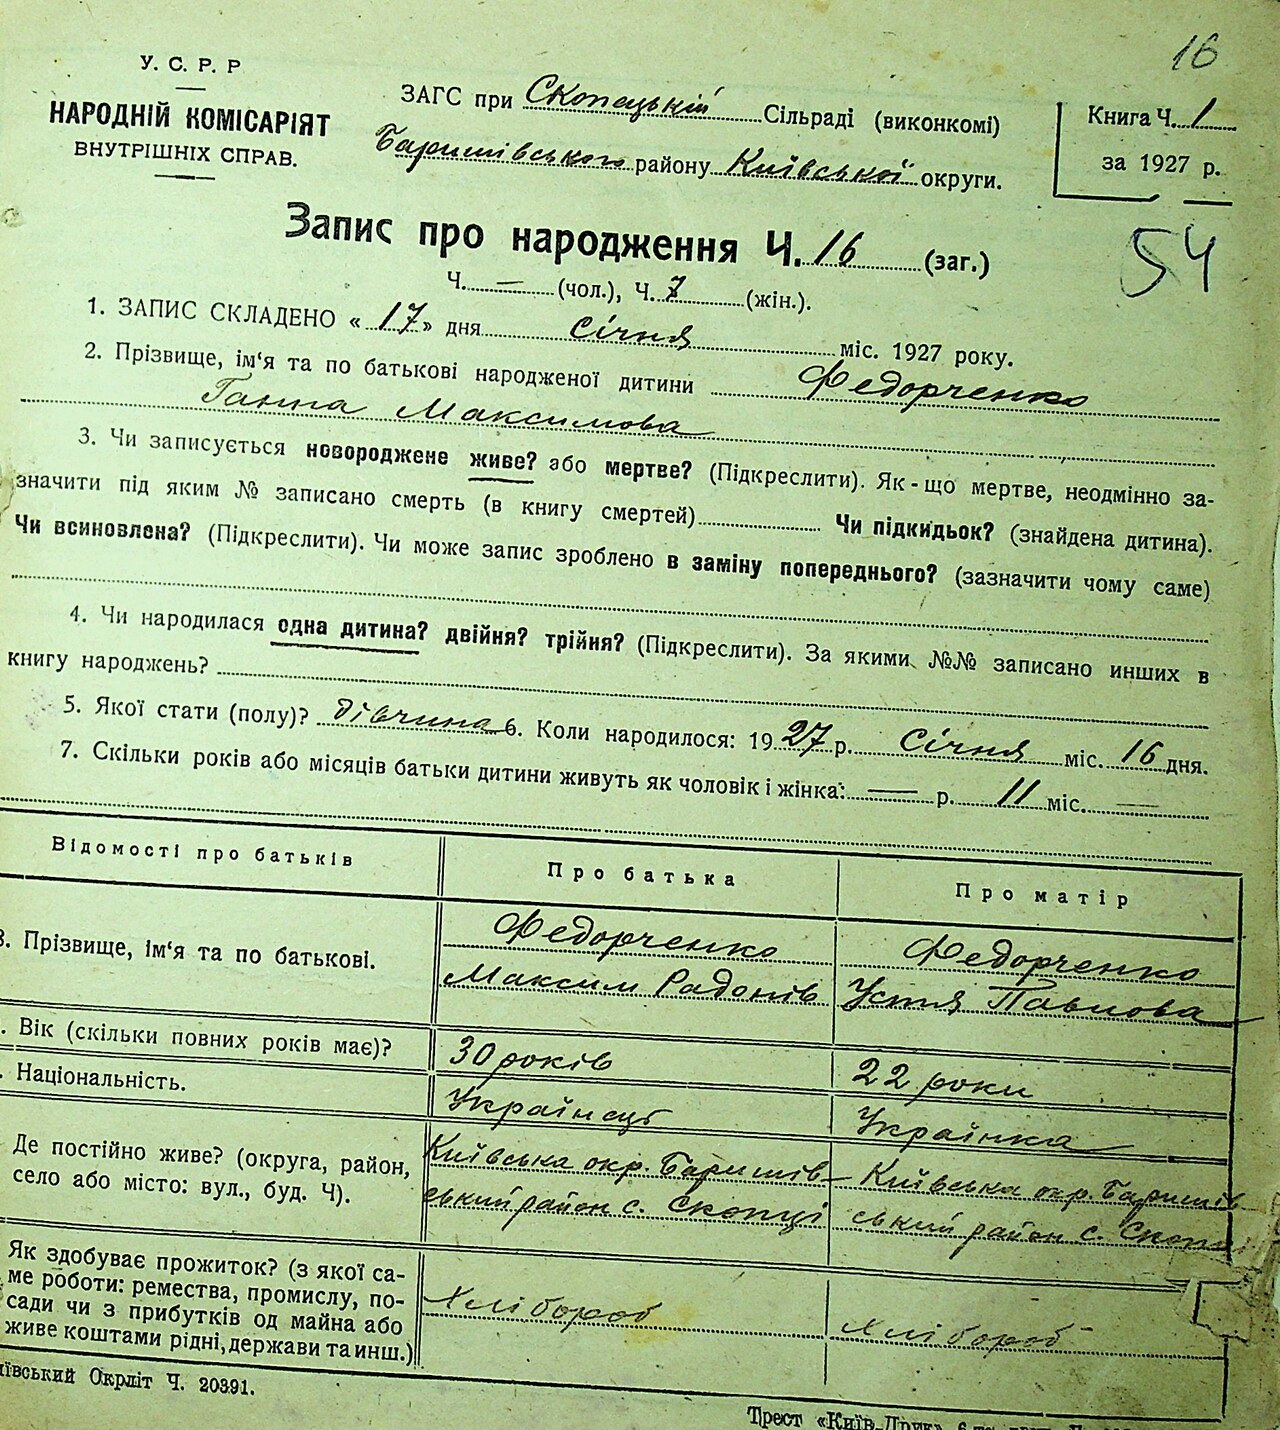 16
У. С. Р. Р
НАРОДНІЙ КОМІСАРІЯТ
ВНУТРІШНІХ СПРАВ.
ЗАГС при Скопецькій Сільраді (виконкомі)
Баришівського району Київської округи.
Книга Ч. 1
за 1927 р.
54
Запис про народження Ч. 16 (заг.)
Ч. — (чол.), Ч. 7 (жін.).
1. ЗАПИС СКЛАДЕНО « 17 » дня січня міс. 1927 року.
2. Прізвище, ім'я та по батькові народженої дитини Федорченко
Ганна Максимова
3. Чи записується новороджене живе? або мертве? (Підкреслити). Як-що мертве, неодмінно за-
значити під яким № записано смерть (в книгу смертей) Чи підкидьок? (знайдена дитина).
Чи всиновлена? (Підкреслити). Чи може запис зроблено в заміну попереднього? (зазначити чому саме)
4. Чи народилася одна дитина? двійня? трійня? (Підкреслити). За якими №№ записано инших в
книгу народжень?
5. Якої стати (полу)? дівчина 6. Коли народилося: 1927 р. Січня міс. 16 дня.
7. Скільки років або місяців батьки дитини живуть як чоловік і жінка: — р. 11 міс. —
Відомості про батьків
Про батька
Про матір
8. Прізвище, ім'я та по батькові.
Федорченко
Максим Радонів
Федорченко
Устя Павлова
. Вік (скільки повних років має)?
30 років
22 роки
. Національність.
Українець
Українка
Де постійно живе? (округа, район,
село або місто: вул., буд. Ч).
Київська окр. Баришів-
ський район с. Скопці
Київська окр. Баришів
ський район с. Скопці
Як здобуває прожиток? (з якої са-
ме роботи: ремества, промислу, по-
сади чи з прибутків од майна або
живе коштами рідні, держави та инш.)
Хлібороб
Хлібороб
ївський Окрліт Ч. 20391.
Трест «Київ-Друк»